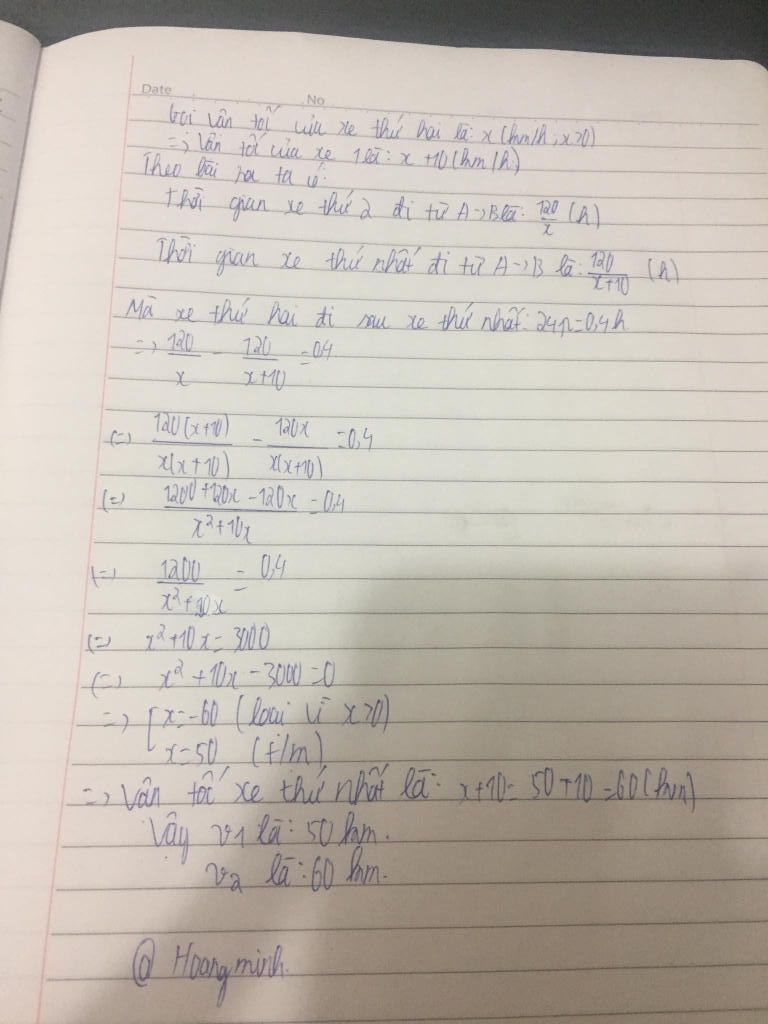 Date No
Gọi vận tốc của xe thứ hai là: x (km/h; x>0)
=> Vận tốc của xe 1 là: x +10 (km/h)
Theo bài ra ta có:
Thời gian xe thứ 2 đi từ A->B là: 120/x (h)
Thời gian xe thứ nhất đi từ A->B là: 120/(x+10) (h)
Mà xe thứ hai đi sau xe thứ nhất: 24p=0,4h
=> 120/x - 120/(x+10) =0,4
(=) 120(x+10)/x(x+10) - 120x/x(x+10) =0,4
(=) (1200+120x-120x)/(x²+10x) =0,4
(=) 1200/(x²+10x) = 0,4
(=) x²+10x=3000
(=) x²+10x-3000=0
=> [x=-60 (loại vì x>0)
x=50 (t/m)
=> Vận tốc xe thứ nhất là: x+10= 50+10=60(km)
Vậy v1 là: 50 km.
v2 là: 60 km.
@ Hoangminh.